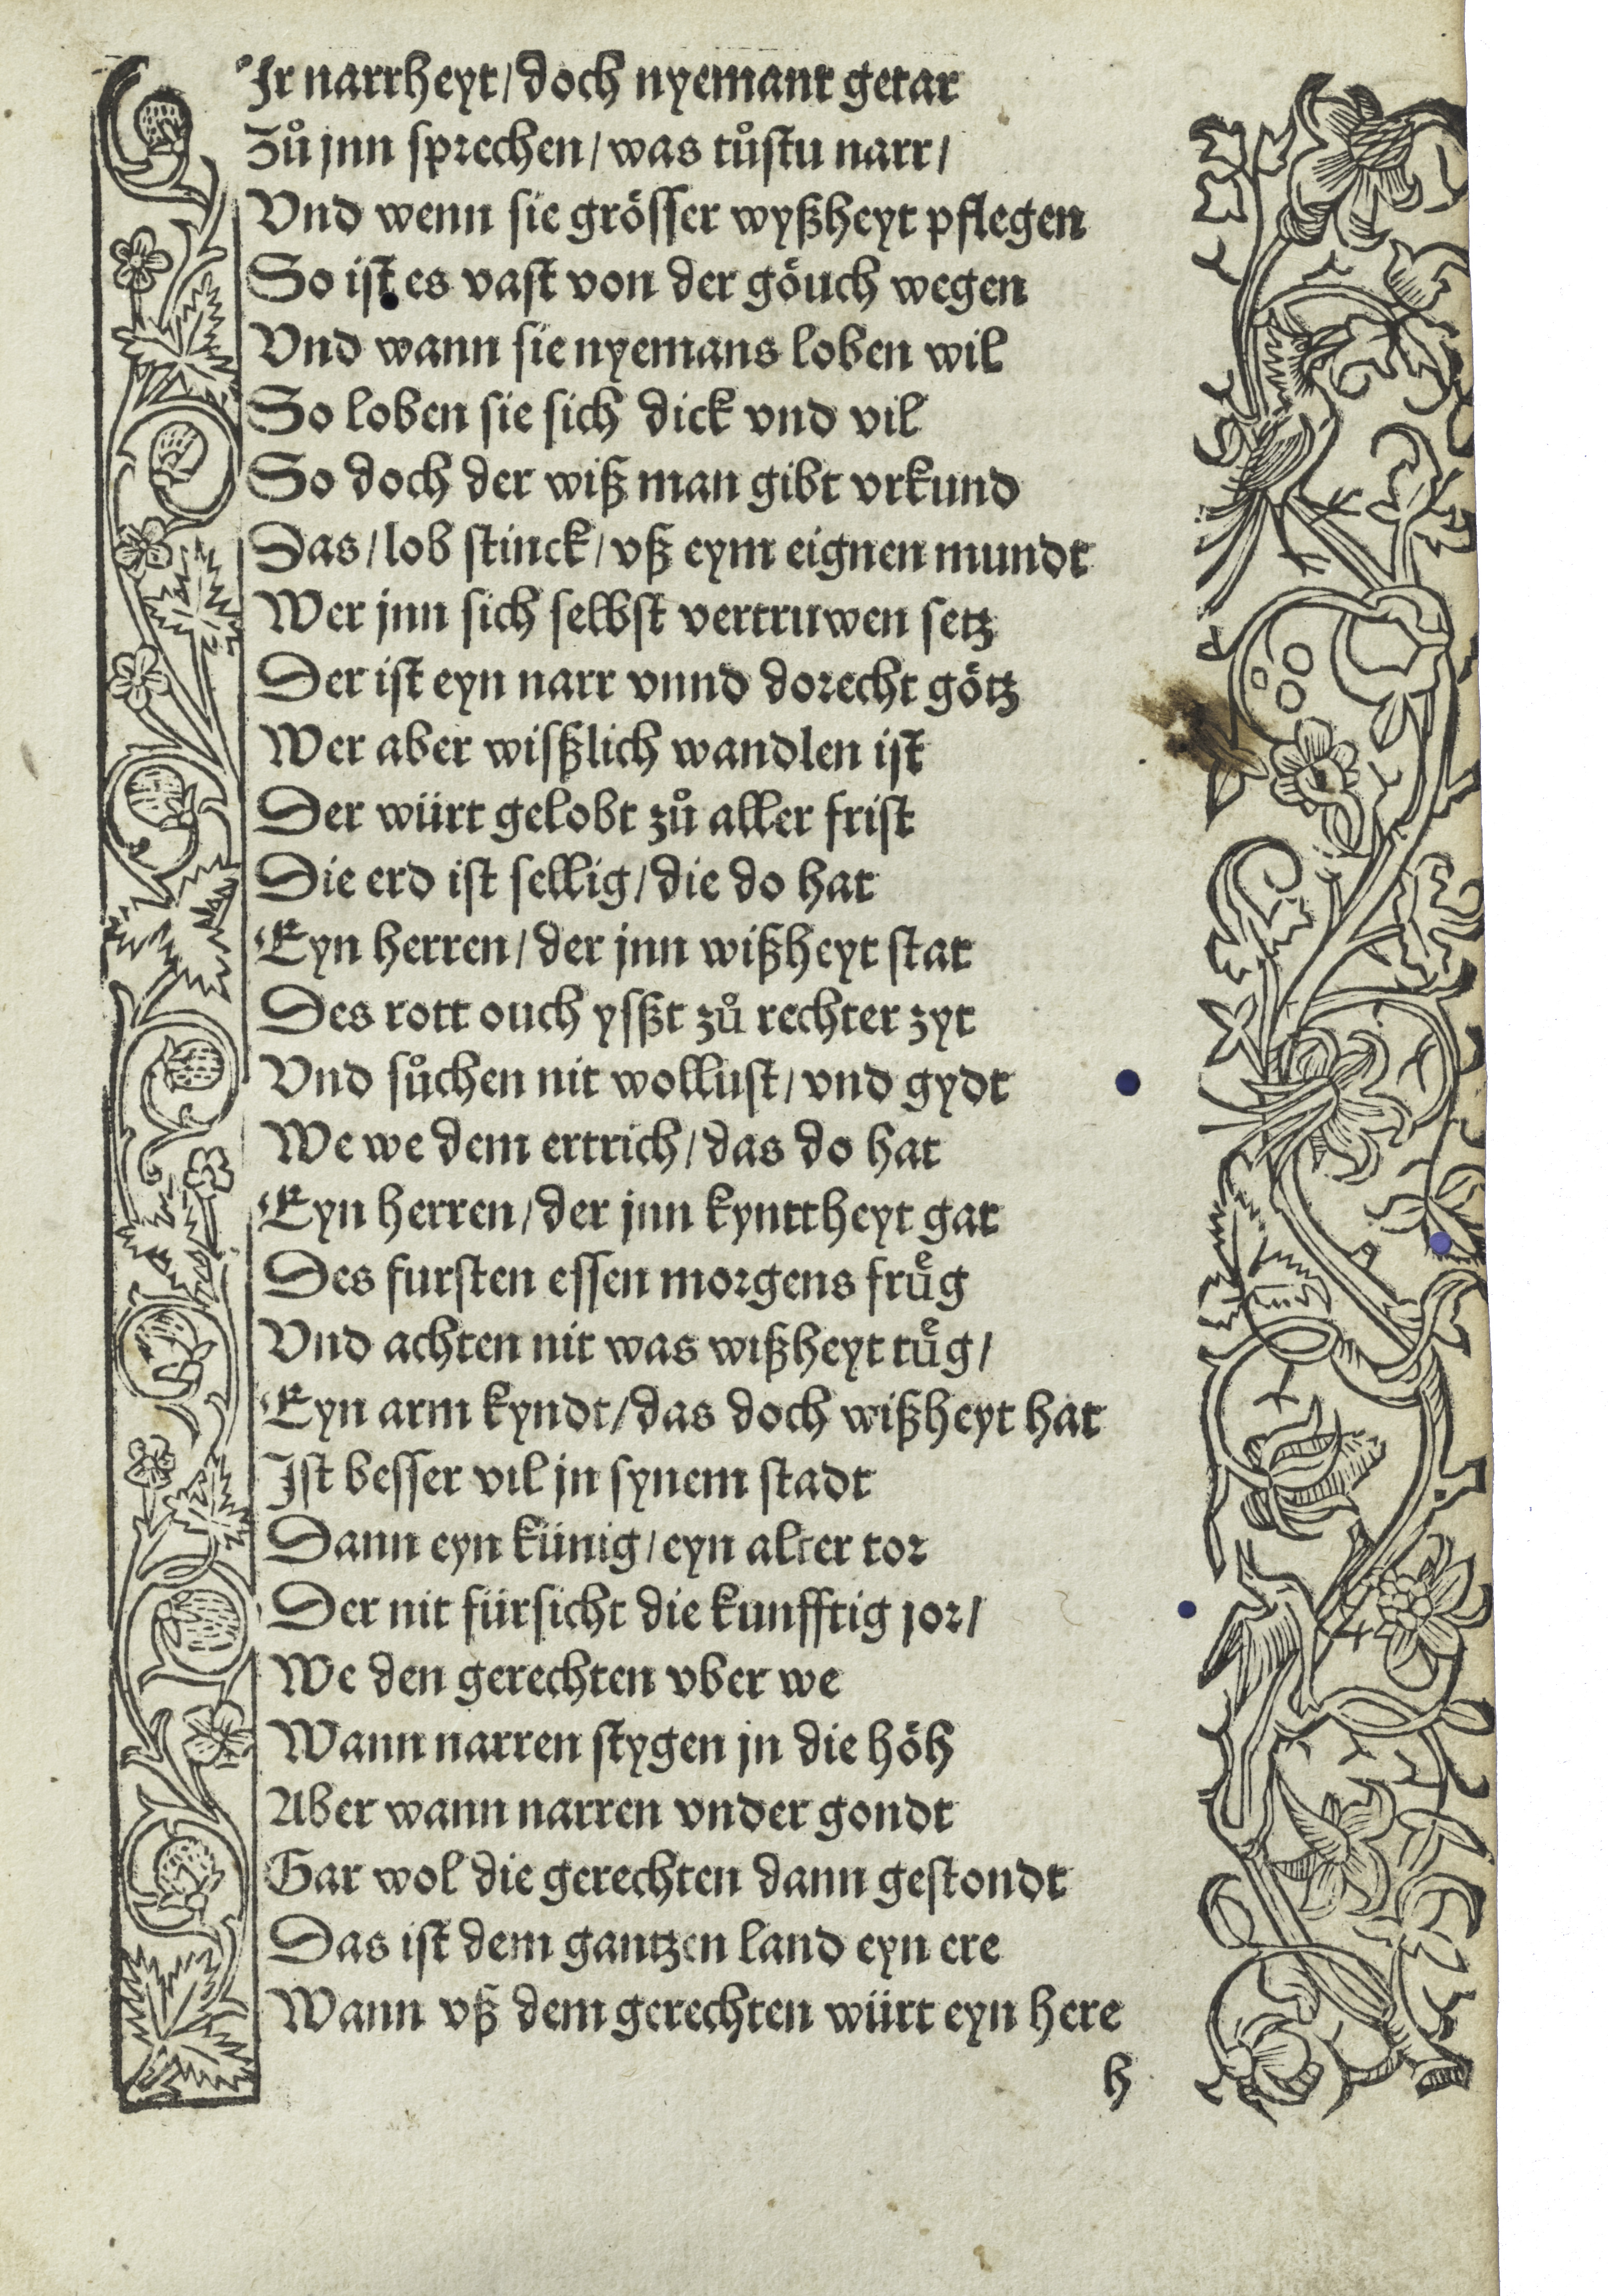 Ir narrheyt/ doch nyemant getar
Zů jnn sprechen/ was tůstu narr/
Vnd wenn sie grösser wyßheyt pflegen
So ist es vast von der göuch wegen
Vnd wann sie nyemans loben wil
So loben sie sich dick vnd vil
So doch der wiß man gibt vrkund
Das/ lob stinck/ vß eym eignen mundt
Wer jnn sich selbst vertruwen setz
Der ist eyn narr vnnd dorecht götz
Wer aber wisßlich wandlen ist
Der würt gelobt zů aller frist
Die erd ist sellig/ die do hat
Eyn herren/ der jnn wißheyt stat
Des rott ouch ysßt zů rechter zyt
Vnd sůchen nit wollust/ vnd gydt
We we dem ertrich/ das do hat
Eyn herren/ der jnn kynttheyt gat
Des fursten essen morgens fruͤg
Vnd achten nit was wißheyt tuͤg/
Eyn arm kyndt/ das doch wißheyt hat
Ist besser vil jn synem stadt
Dann eyn künig/ eyn alter tor
Der nit fürsicht die kunfftig jor/
We den gerechten vber we
Wann narren stygen jn die höh
Aber wann narren vnder gondt
Gar wol die gerechten dann gestondt
Das ist dem gantzen land eyn ere
Wann vß dem gerechten würt eyn here
h